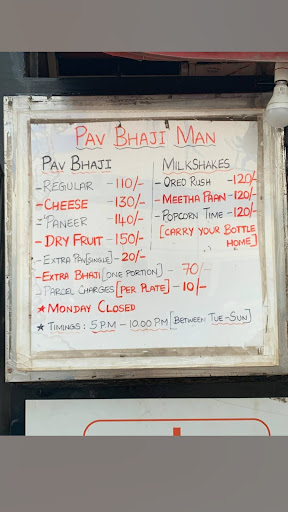 PAV BHAJI MAN
PAV BHAJI
- REGULAR - 110/-
- CHEESE - 130/-
- PANEER - 140/-
- DRY FRUIT - 150/-
- EXTRA PAV[SINGLE] - 20/-
- EXTRA BHAJI [ONE PORTION] - 70/-
- PARCEL CHARGES [PER PLATE] - 10/-
MILKSHAKES
- OREO RUSH - 120/-
- MEETHA PAAN - 120/-
- POPCORN TIME - 120/-
[CARRY YOUR BOTTLE
HOME]
★ MONDAY CLOSED
★ TIMINGS : 5 P.M - 10.00 PM [BETWEEN TUE-SUN]